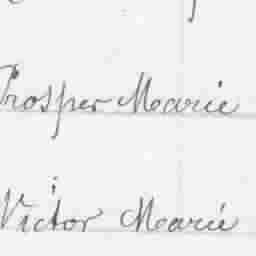 Prosper Marie
Victor Marie